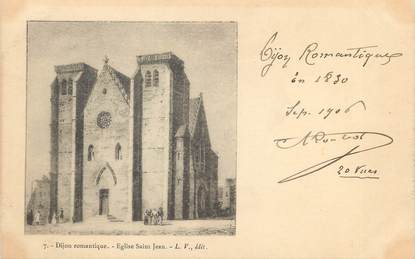 Dijon Romantique
en 1830
Sep. 1906
20 vues
7. - Dijon romantique. - Eglise Saint Jean. - L. V., édit.